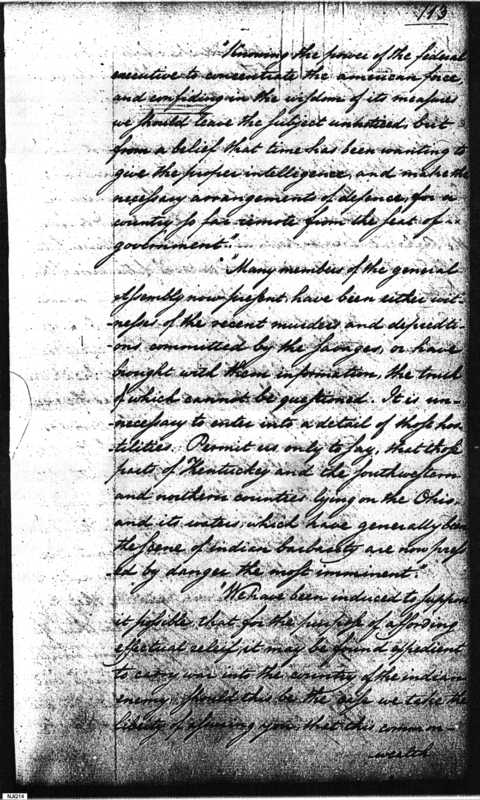 113
"Knowing the power of the federal
executive to concentrate the american force
and confiding in the wisdom of its measures
we should leave the subject unnoticed, but
from a belief that time has been wanting to
give the proper intelligence, and make the
necessary arrangements of defence, for a
country so far remote from the seat of
government."
"Many members of the general
Assembly now present, have been either wit-
-nesses of the recent murders and depredti-
-ons, committed by the savages, or have
brought with them information, the truth
of which cannot be questioned. It is un-
-necessary to enter into a detail of those hos-
-tilities. Permit us only to say, that those
parts of Kentuckey and the southwestern
and northern counties lying on the Ohio
and its waters, which have generally been
the scene of indian barbarity are now press
-ed by danger the most imminent."
"We have been induced to suppose
it possible, that for the purpose of affording
effectual releif, it may be found expedient
to carry war into the country of the indian
enemy; should this be the case we take the
liberty of assuring you, that this common-
wealth
NJQ14